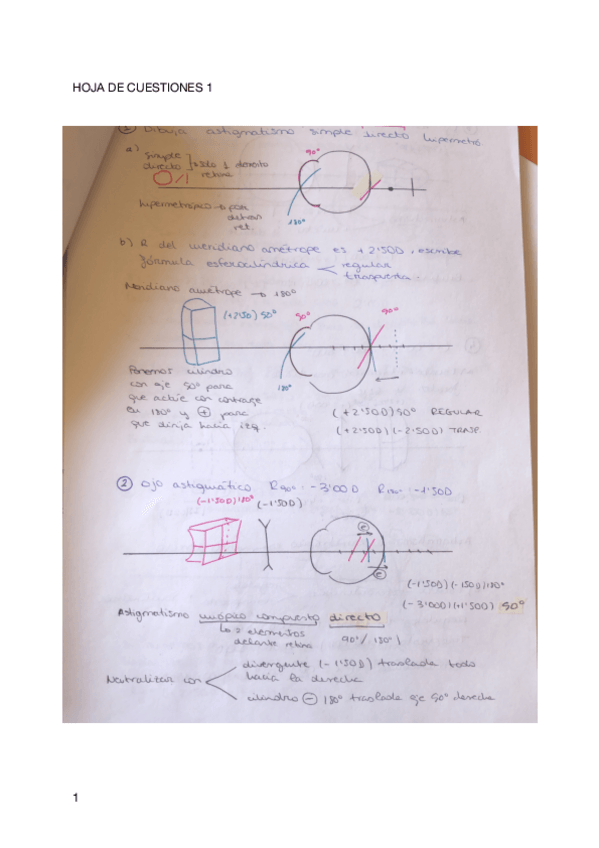 HOJA DE CUESTIONES 1
Dibuja astigmatismo simple directo hipermetró
a) simple
directo sólo 1 dentro
retina
90º
hipermetrópico → por
detrás
ret.
180º
b) R del meridiano amétrope es +2'50D, escribe
fórmula esferocilíndrica regular
traspuesta.
Meridiano amétrope → 180º
(+2'50) 90º
90º
90º
180º
Ponemos cilindro
con eje 90º para
que actúe con contraeje
en 180º y + para
que dirija hacia izq.
(+2'50D) 90º REGULAR
(+2'50D) (-2'50D) TRASP.
2 Ojo astigmático R90º: -3'00D R180º: -1'50D
(-1'50D) 180º (-1'50D)
(-1'50D) (-1'50D) 180º
(-3'00D) (+1'50D) 90º
Astigmatismo miópico compuesto directo
los 2 elementos
delante retina
90º/ 180º \
Neutralizar con
divergente (-1'50D) traslada todo
hacia la derecha
cilindro - 180º traslada eje 90º derecha
1